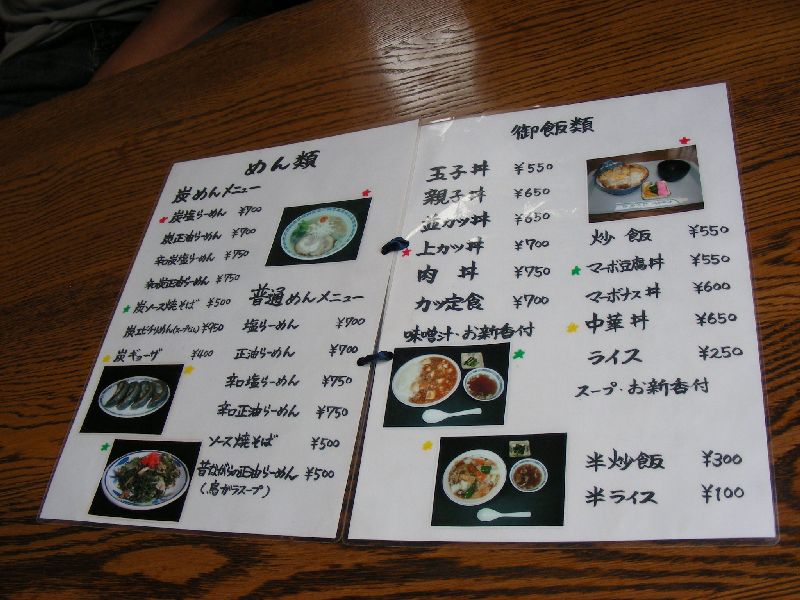 めん類
炭めんメニュー
炭塩らーめん ¥700
炭正油らーめん ¥700
辛口炭塩らーめん ¥750
辛口炭正油らーめん ¥750
炭ソース焼そば ¥500
炭エビチリめん(スープなし) ¥950
炭ギョーザ ¥400
普通めんメニュー
塩らーめん ¥700
正油らーめん ¥700
辛口塩らーめん ¥750
辛口正油らーめん ¥750
ソース焼そば ¥500
昔ながらの正油らーめん ¥500
(鳥がらスープ)
御飯類
玉子丼 ¥550
親子丼 ¥650
並カツ丼 ¥650
上カツ丼 ¥700
肉丼 ¥750
カツ定食 ¥700
味噌汁・お新香付
炒飯 ¥550
マーボ豆腐丼 ¥550
マーボナス丼 ¥600
中華丼 ¥650
ライス ¥250
スープ・お新香付
半炒飯 ¥300
半ライス ¥100